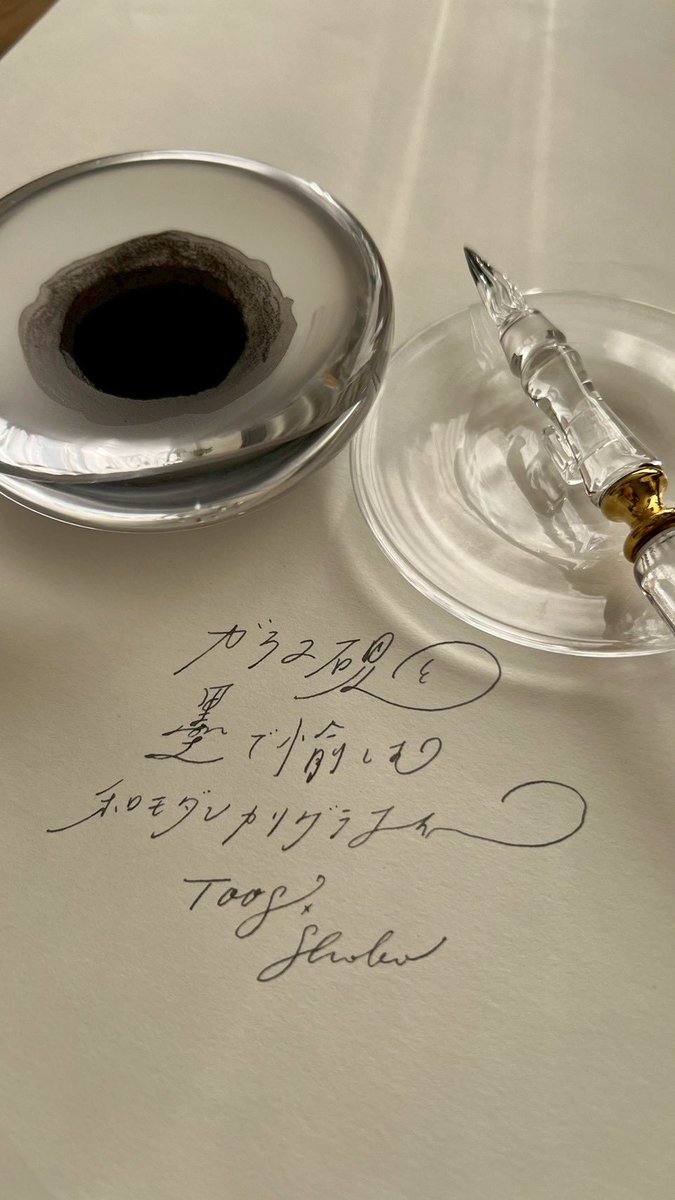 ガラス硯と
墨で愉しむ
和モダンカリグラフィー
Toogi ×
Shoko